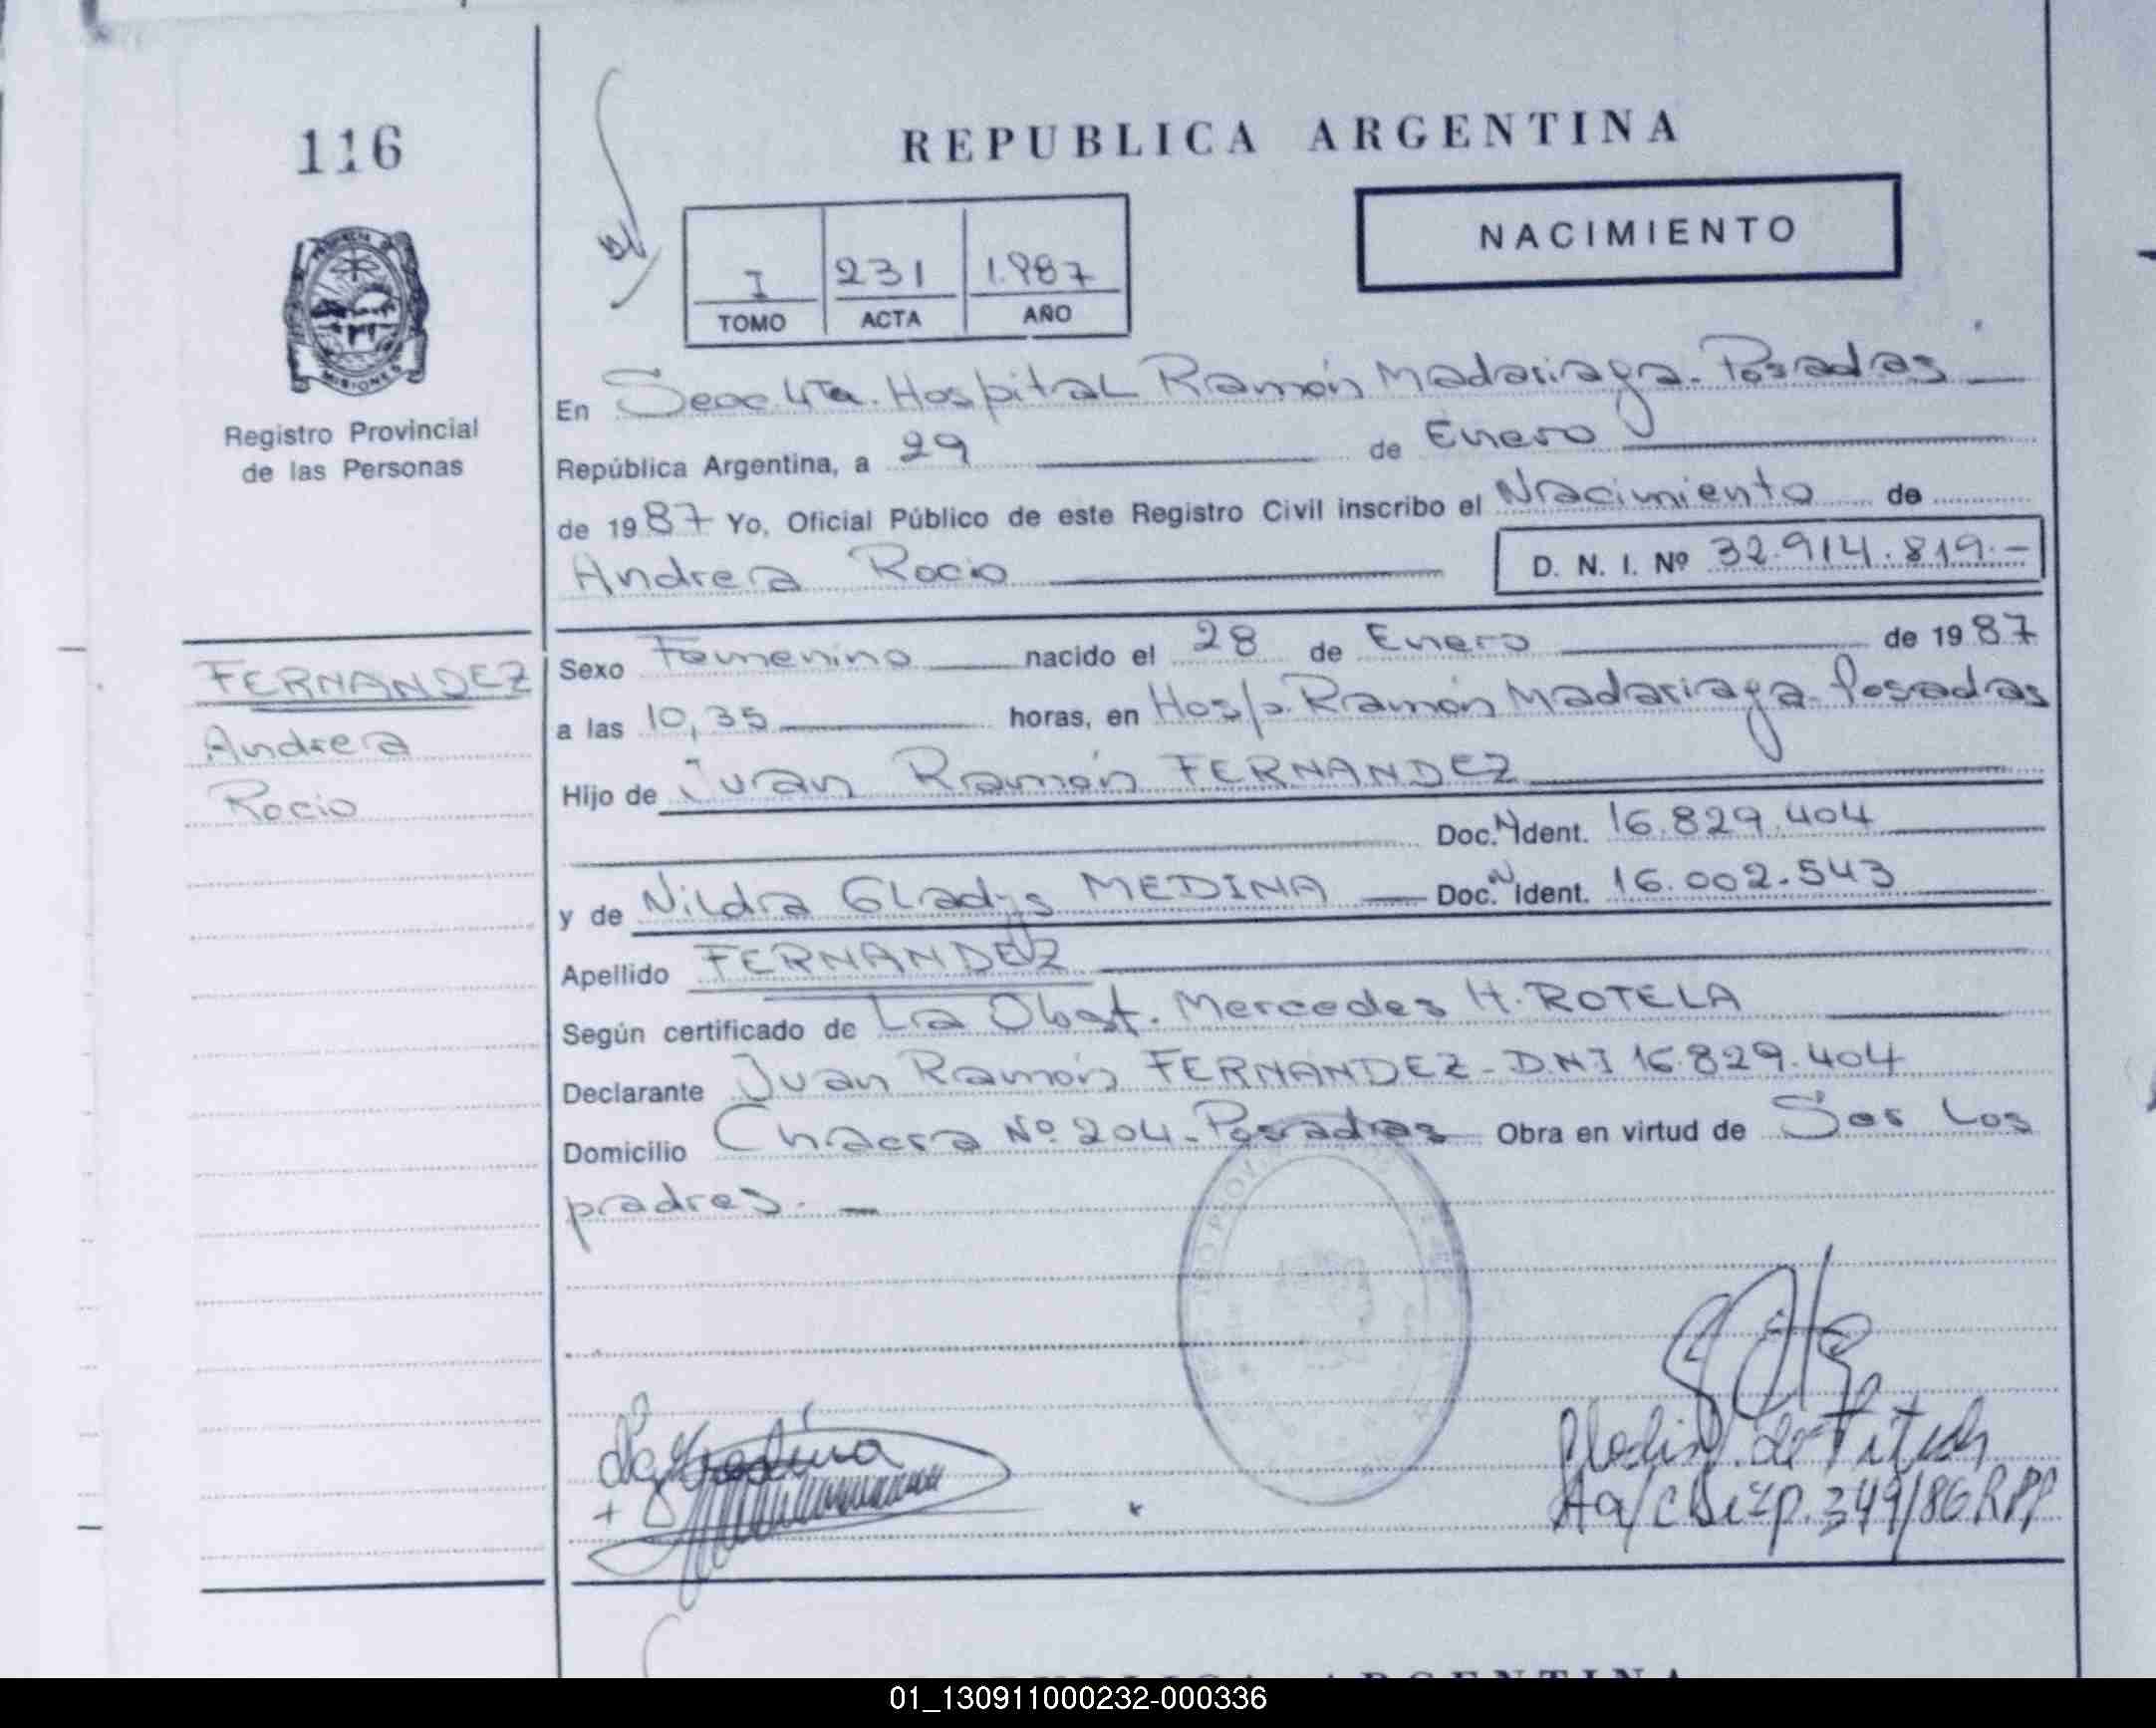 116
REPUBLICA ARGENTINA
NACIMIENTO
I 231 1.987
TOMO ACTA AÑO
PROVINCIA D
MISIONES
Registro Provincial
de las Personas
En Secc 4ta. Hospital Ramón Madariaga - Posadas
República Argentina, a 29 de Enero
de 1987 Yo, Oficial Público de este Registro Civil inscribo el Nacimiento de
Andrea Rocio D. N. I. Nº 32.914.819.-
FERNANDEZ
Andrea
Rocio
Sexo Femenino nacido el 28 de Enero de 1987
a las 10,35 horas, en Hosp. Ramón Madariaga - Posadas
Hijo de Juan Ramón FERNANDEZ
Doc. N Ident. 16.829.404
y de Nilda Gladys MEDINA Doc. N Ident. 16.002.543
Apellido FERNANDEZ
Según certificado de La Obst. Mercedes H. ROTELA
Declarante Juan Ramón FERNANDEZ - DNI 16.829.404
Domicilio Chacra Nº 204 - Posadas Obra en virtud de Ser los
padres. -
A a/c Disp. 349/86 RPP
REPUBLICA ARGENTINA
01_130911000232-000336